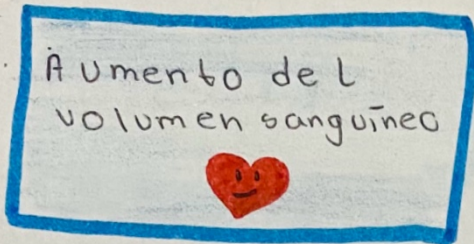 Aumento del
volumen sanguíneo